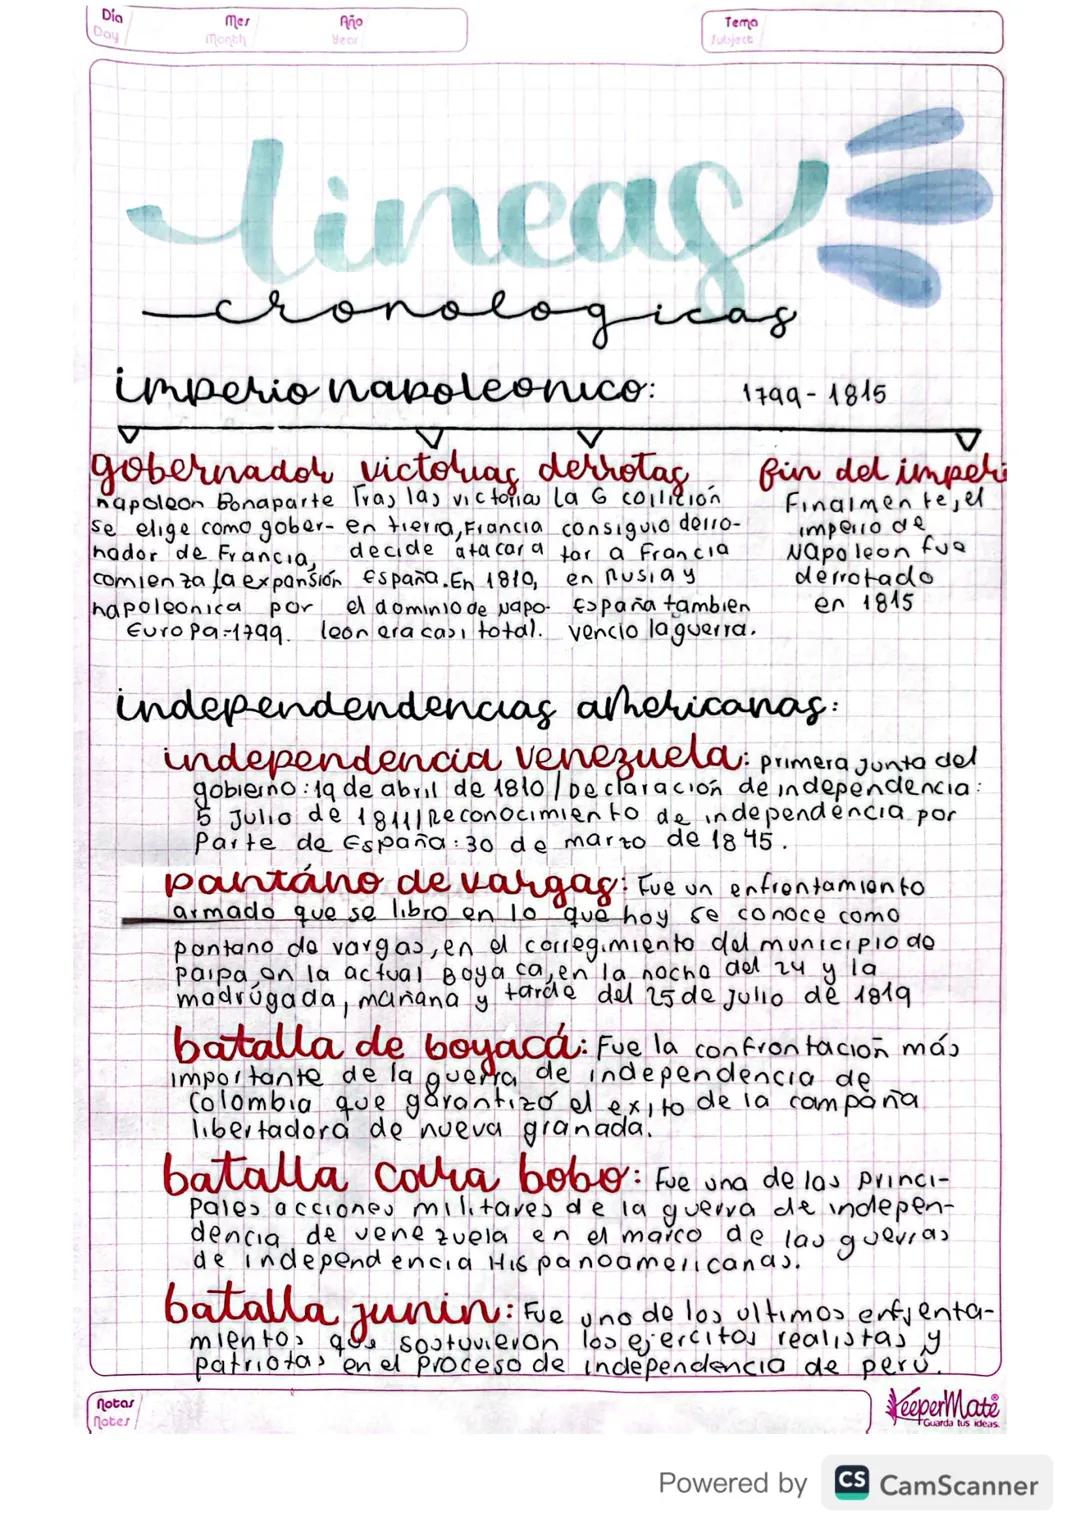 Día Mes Año Tema
Day Month Year Subject
lineas
cronologicas
imperio napoleonico: 1799-1815
gobernador victorias derrotas fin del imperi
napoleon Bonaparte Tras las victorias La 6 coilición Finalmente, el
se elige como gober- en tierra, Francia consiguio derro- imperio de
nador de Francia, decide atacar a tar a Francia Napoleon fue
comienza la expansión España. En 1810, en Rusia y derrotado
napoleonica por el dominio de Napo- España tambien en 1815
Europa-1799. leon era casi total. vencio la guerra.
independendencias americanas:
independencia venezuela: primera junta del
gobierno: 19 de abril de 1810/Declaración de independencia:
5 Julio de 1811/Reconocimiento de independencia por
Parte de España: 30 de marzo de 1845.
pantáno de vargas: Fue un enfrontamiento
armado que se libro en lo que hoy se conoce como
pantano de vargas, en el corregimiento del municipio de
paipa en la actual Boyaca, en la noche del 24 y la
madrúgada, mañana y tarde del 25 de Julio de 1819
batalla de boyacá: Fue la confrontación más
importante de la guerra de independencia de
Colombia que garantizó el exito de la campaña
libertadora de nueva granada.
batalla cara bobo: Fue una de las princi-
Pales acciones militares de la guerra de indepen-
dencia de venezuela en el marco de las guerras
de independencia Hispanoamericanas.
batalla junin: Fue uno de los ultimos enfrenta-
mientos que sostuvieron los ejercitos realistas y
patriotas en el proceso de independencia de perú.
Notas
Notes
KeeperMate®
Guarda tus ideas.
Powered by CS CamScanner